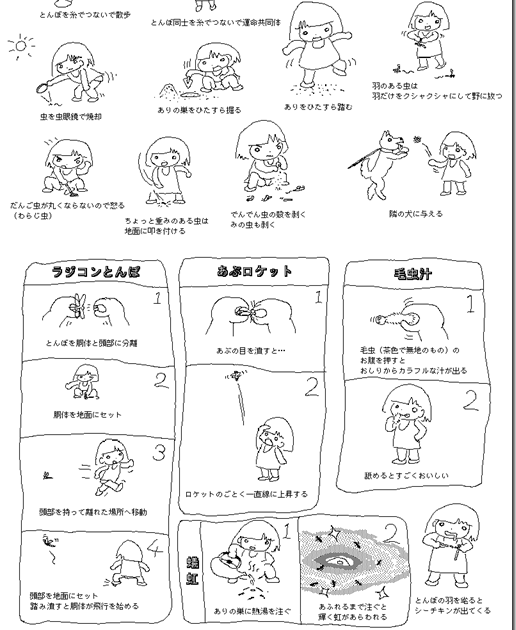 とんぼを糸でつないで散歩
とんぼ同士を糸でつないで運命共同体
虫を虫眼鏡で焼却
ありの巣をひたすら掘る
ありをひたすら踏む
羽のある虫は
羽だけをクシャクシャにして野に放つ
だんご虫が丸くならないので怒る
(わらじ虫)
ちょっと重みのある虫は
地面に叩き付ける
でんでん虫の殻を剥く
みの虫も剥く
隣の犬に与える
ラジコンとんぼ
1
とんぼを胴体と頭部に分離
2
胴体を地面にセット
3
頭部を持って離れた場所へ移動
4
頭部を地面にセット
踏み潰すと胴体が飛行を始める
あぶロケット
1
あぶの目を潰すと…
2
ロケットのごとく一直線に上昇する
毛虫汁
1
毛虫(茶色で無地のもの)の
お腹を押すと
おしりからカラフルな汁が出る
2
舐めるとすごくおいしい
蟻虹
1
ありの巣に熱湯を注ぐ
2
あふれるまで注ぐと
輝く虹があらわれる
とんぼの羽を毟ると
シーチキンが出てくる